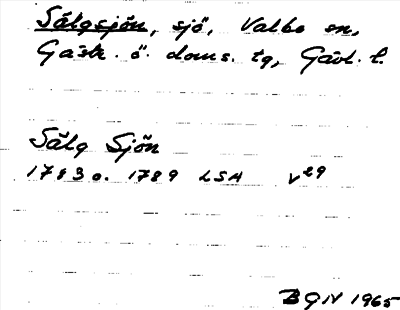 Sälgsjön, sjö, Valbo sn,
Gästr. ö. doms. tg, Gävl. l.
Sälg Sjön
1783 o. 1789 LSA V29
BGN 1965